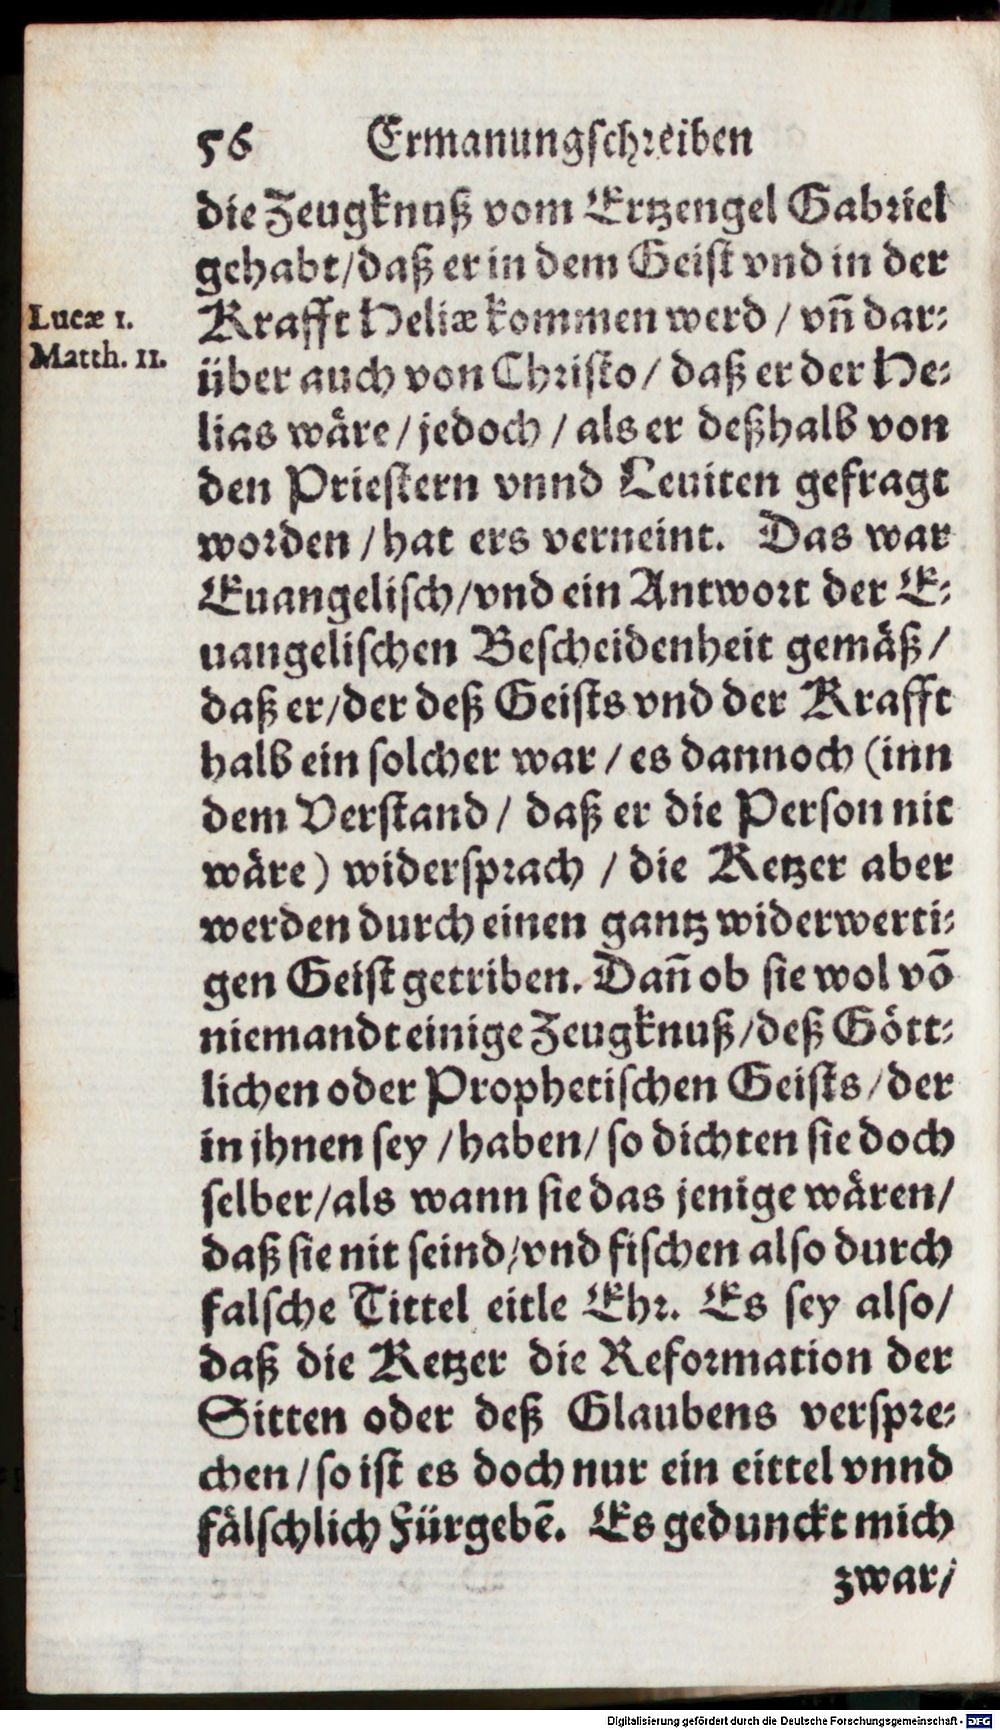 56 Ermanungſchreiben
die Zeugknuß vom Ertzengel Gabriel
gehabt/daß er in dem Geiſt vnd in der
Lucæ 1.
Matth. 11.
Krafft Heliæ kommen werd / vñ dar⸗
über auch von Chriſto / daß er der He⸗
lias wäre / jedoch / als er deßhalb von
den Prieſtern vnnd Leuiten gefragt
worden / hat ers verneint. Das war
Euangeliſch/vnd ein Antwort der E⸗
uangeliſchen Beſcheidenheit gemäß /
daß er/der deß Geiſts vnd der Krafft
halb ein ſolcher war / es dannoch (inn
dem Verſtand / daß er die Perſon nit
wäre) widerſprach / die Ketzer aber
werden durch einen gantz widerwerti⸗
gen Geiſt getriben. Dañ ob ſie wol võ
niemandt einige Zeugknuß/deß Gött⸗
lichen oder Prophetiſchen Geiſts/der
in jhnen ſey /haben/ ſo dichten ſie doch
ſelber/als wann ſie das jenige wären/
daß ſie nit ſeind/vnd fiſchen alſo durch
falſche Tittel eitle Ehr. Es ſey alſo/
daß die Ketzer die Reformation der
Sitten oder deß Glaubens verſpre⸗
chen / ſo iſt es doch nur ein eittel vnnd
fälſchlich Fürgebẽ. Es gedunckt mich
zwar/
Digitalisierung gefördert durch die Deutsche Forschungsgemeinschaft - DFG